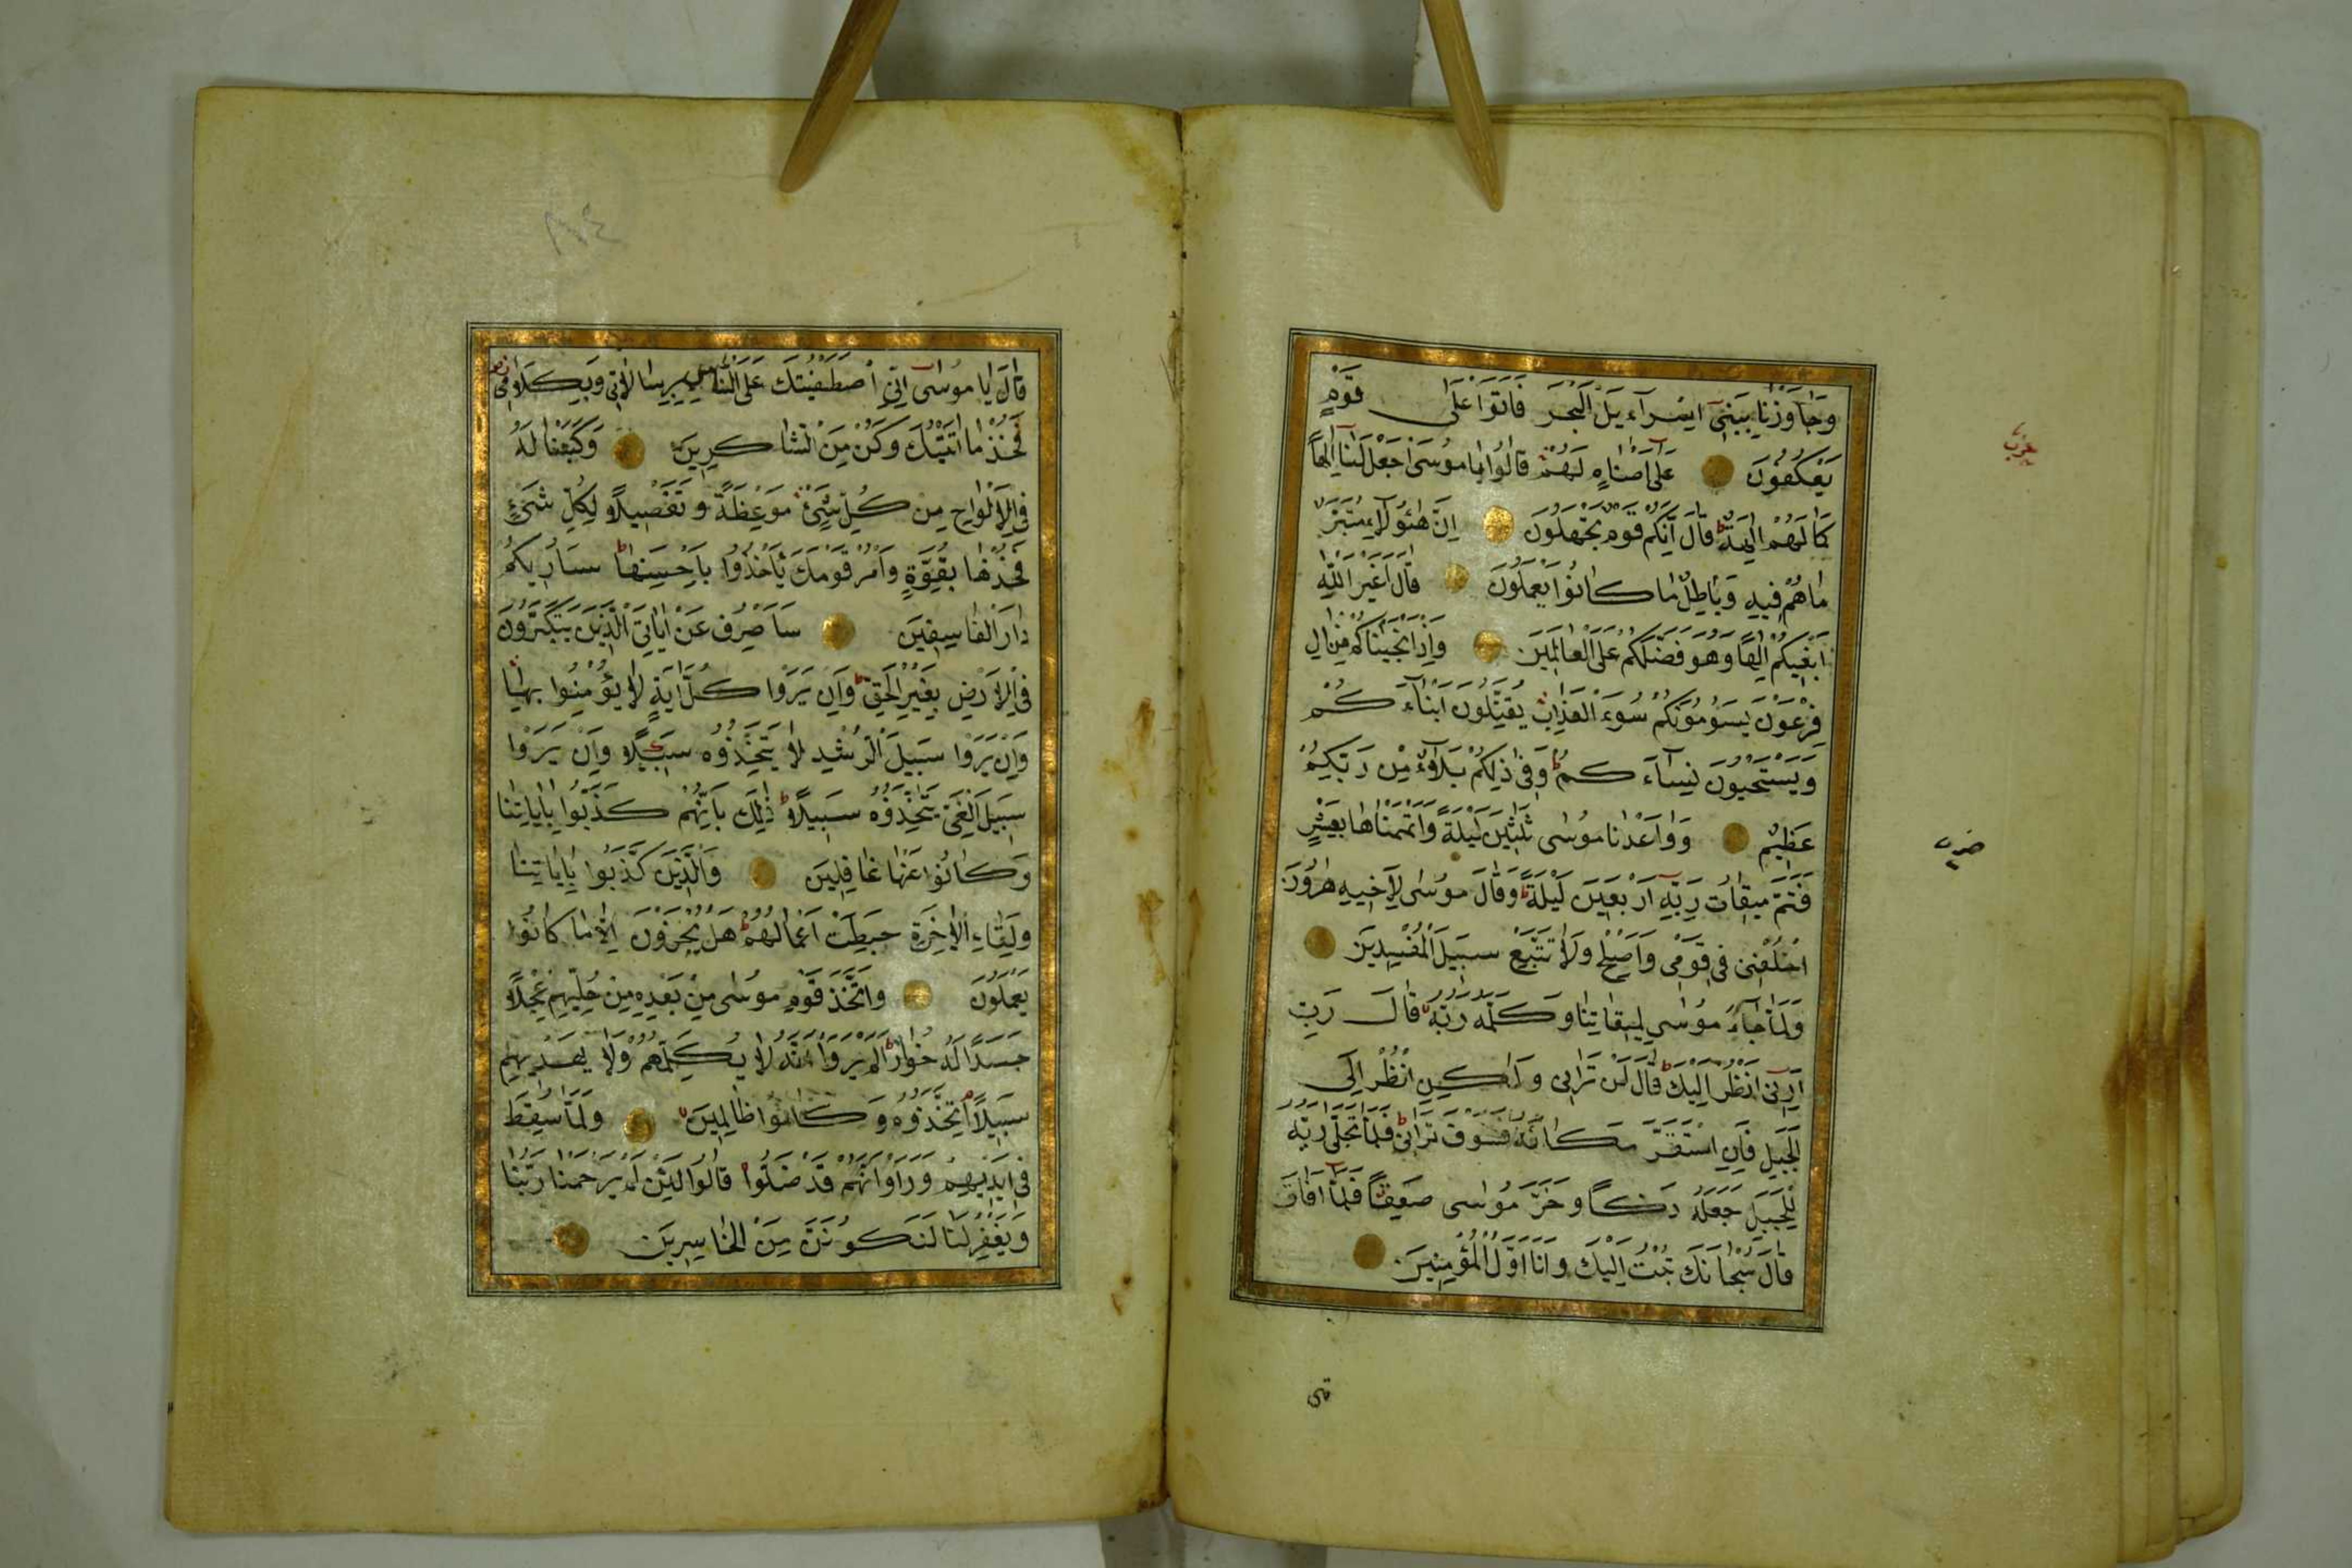 وَجَاوَزْنَا بِبَنِي اِسْرَاءِيلَ الْبَحْرَ فَاَتَوْا عَلَى قَوْمٍ
يَعْكُفُونَ عَلَى اَصْنَامٍ لَهُمْ قَالُوا يَا مُوسَى اجْعَلْ لَنَا اِلٰهًا
كَمَا لَهُمْ اٰلِهَةٌ قَالَ اِنَّكُمْ قَوْمٌ تَجْهَلُونَ اِنَّ هٰؤُلَاءِ مُتَبَّرٌ
مَا هُمْ فِيهِ وَبَاطِلٌ مَا كَانُوا يَعْمَلُونَ قَالَ اَغَيْرَ اللّٰهِ
اَبْغِيكُمْ اِلٰهًا وَهُوَ فَضَّلَكُمْ عَلَى الْعَالَمِينَ وَاِذْ اَنْجَيْنَاكُمْ مِنْ اٰلِ
فِرْعَوْنَ يَسُومُونَكُمْ سُوءَ الْعَذَابِ يُقَتِّلُونَ اَبْنَاءَكُمْ
وَيَسْتَحْيُونَ نِسَاءَكُمْ وَفِي ذٰلِكُمْ بَلَاءٌ مِنْ رَبِّكُمْ
عَظِيمٌ وَوَاعَدْنَا مُوسٰى ثَلٰثِينَ لَيْلَةً وَاَتْمَمْنَاهَا بِعَشْرٍ
فَتَمَّ مِيقَاتُ رَبِّهِ اَرْبَعِينَ لَيْلَةً وَقَالَ مُوسٰى لِاَخِيهِ هٰرُونَ
اخْلُفْنِي فِي قَوْمِي وَاَصْلِحْ وَلَا تَتَّبِعْ سَبِيلَ الْمُفْسِدِينَ
وَلَمَّا جَاءَ مُوسٰى لِمِيقَاتِنَا وَكَلَّمَهُ رَبُّهُ قَالَ رَبِّ
اَرِنِي اَنْظُرْ اِلَيْكَ قَالَ لَنْ تَرَانِي وَلٰكِنِ انْظُرْ اِلَى
الْجَبَلِ فَاِنِ اسْتَقَرَّ مَكَانَهُ فَسَوْفَ تَرَانِي فَلَمَّا تَجَلّٰى رَبُّهُ
لِلْجَبَلِ جَعَلَهُ دَكًّا وَخَرَّ مُوسٰى صَعِقًا فَلَمَّا اَفَاقَ
قَالَ سُبْحَانَكَ تُبْتُ اِلَيْكَ وَاَنَا اَوَّلُ الْمُؤْمِنِينَ
قَالَ يَا مُوسٰى اِنِّي اصْطَفَيْتُكَ عَلَى النَّاسِ بِرِسَالَاتِي وَبِكَلَامِي
فَخُذْ مَا اٰتَيْتُكَ وَكُنْ مِنَ الشَّاكِرِينَ وَكَتَبْنَا لَهُ
فِي الْاَلْوَاحِ مِنْ كُلِّ شَيْءٍ مَوْعِظَةً وَتَفْصِيلًا لِكُلِّ شَيْءٍ
فَخُذْهَا بِقُوَّةٍ وَاْمُرْ قَوْمَكَ يَاْخُذُوا بِاَحْسَنِهَا سَاُرِيكُمْ
دَارَ الْفَاسِقِينَ سَاَصْرِفُ عَنْ اٰيَاتِيَ الَّذِينَ يَتَكَبَّرُونَ
فِي الْاَرْضِ بِغَيْرِ الْحَقِّ وَاِنْ يَرَوْا كُلَّ اٰيَةٍ لَا يُؤْمِنُوا بِهَا
وَاِنْ يَرَوْا سَبِيلَ الرُّشْدِ لَا يَتَّخِذُوهُ سَبِيلًا وَاِنْ يَرَوْا
سَبِيلَ الْغَيِّ يَتَّخِذُوهُ سَبِيلًا ذٰلِكَ بِاَنَّهُمْ كَذَّبُوا بِاٰيَاتِنَا
وَكَانُوا عَنْهَا غَافِلِينَ وَالَّذِينَ كَذَّبُوا بِاٰيَاتِنَا
وَلِقَاءِ الْاٰخِرَةِ حَبِطَتْ اَعْمَالُهُمْ هَلْ يُجْزَوْنَ اِلَّا مَا كَانُوا
يَعْمَلُونَ وَاتَّخَذَ قَوْمُ مُوسٰى مِنْ بَعْدِهِ مِنْ حُلِيِّهِمْ عِجْلًا
جَسَدًا لَهُ خُوَارٌ اَلَمْ يَرَوْا اَنَّهُ لَا يُكَلِّمُهُمْ وَلَا يَهْدِيهِمْ
سَبِيلًا اِتَّخَذُوهُ وَكَانُوا ظَالِمِينَ وَلَمَّا سُقِطَ
فِي اَيْدِيهِمْ وَرَاَوْا اَنَّهُمْ قَدْ ضَلُّوا قَالُوا لَئِنْ لَمْ يَرْحَمْنَا رَبُّنَا
وَيَغْفِرْ لَنَا لَنَكُونَنَّ مِنَ الْخَاسِرِينَ